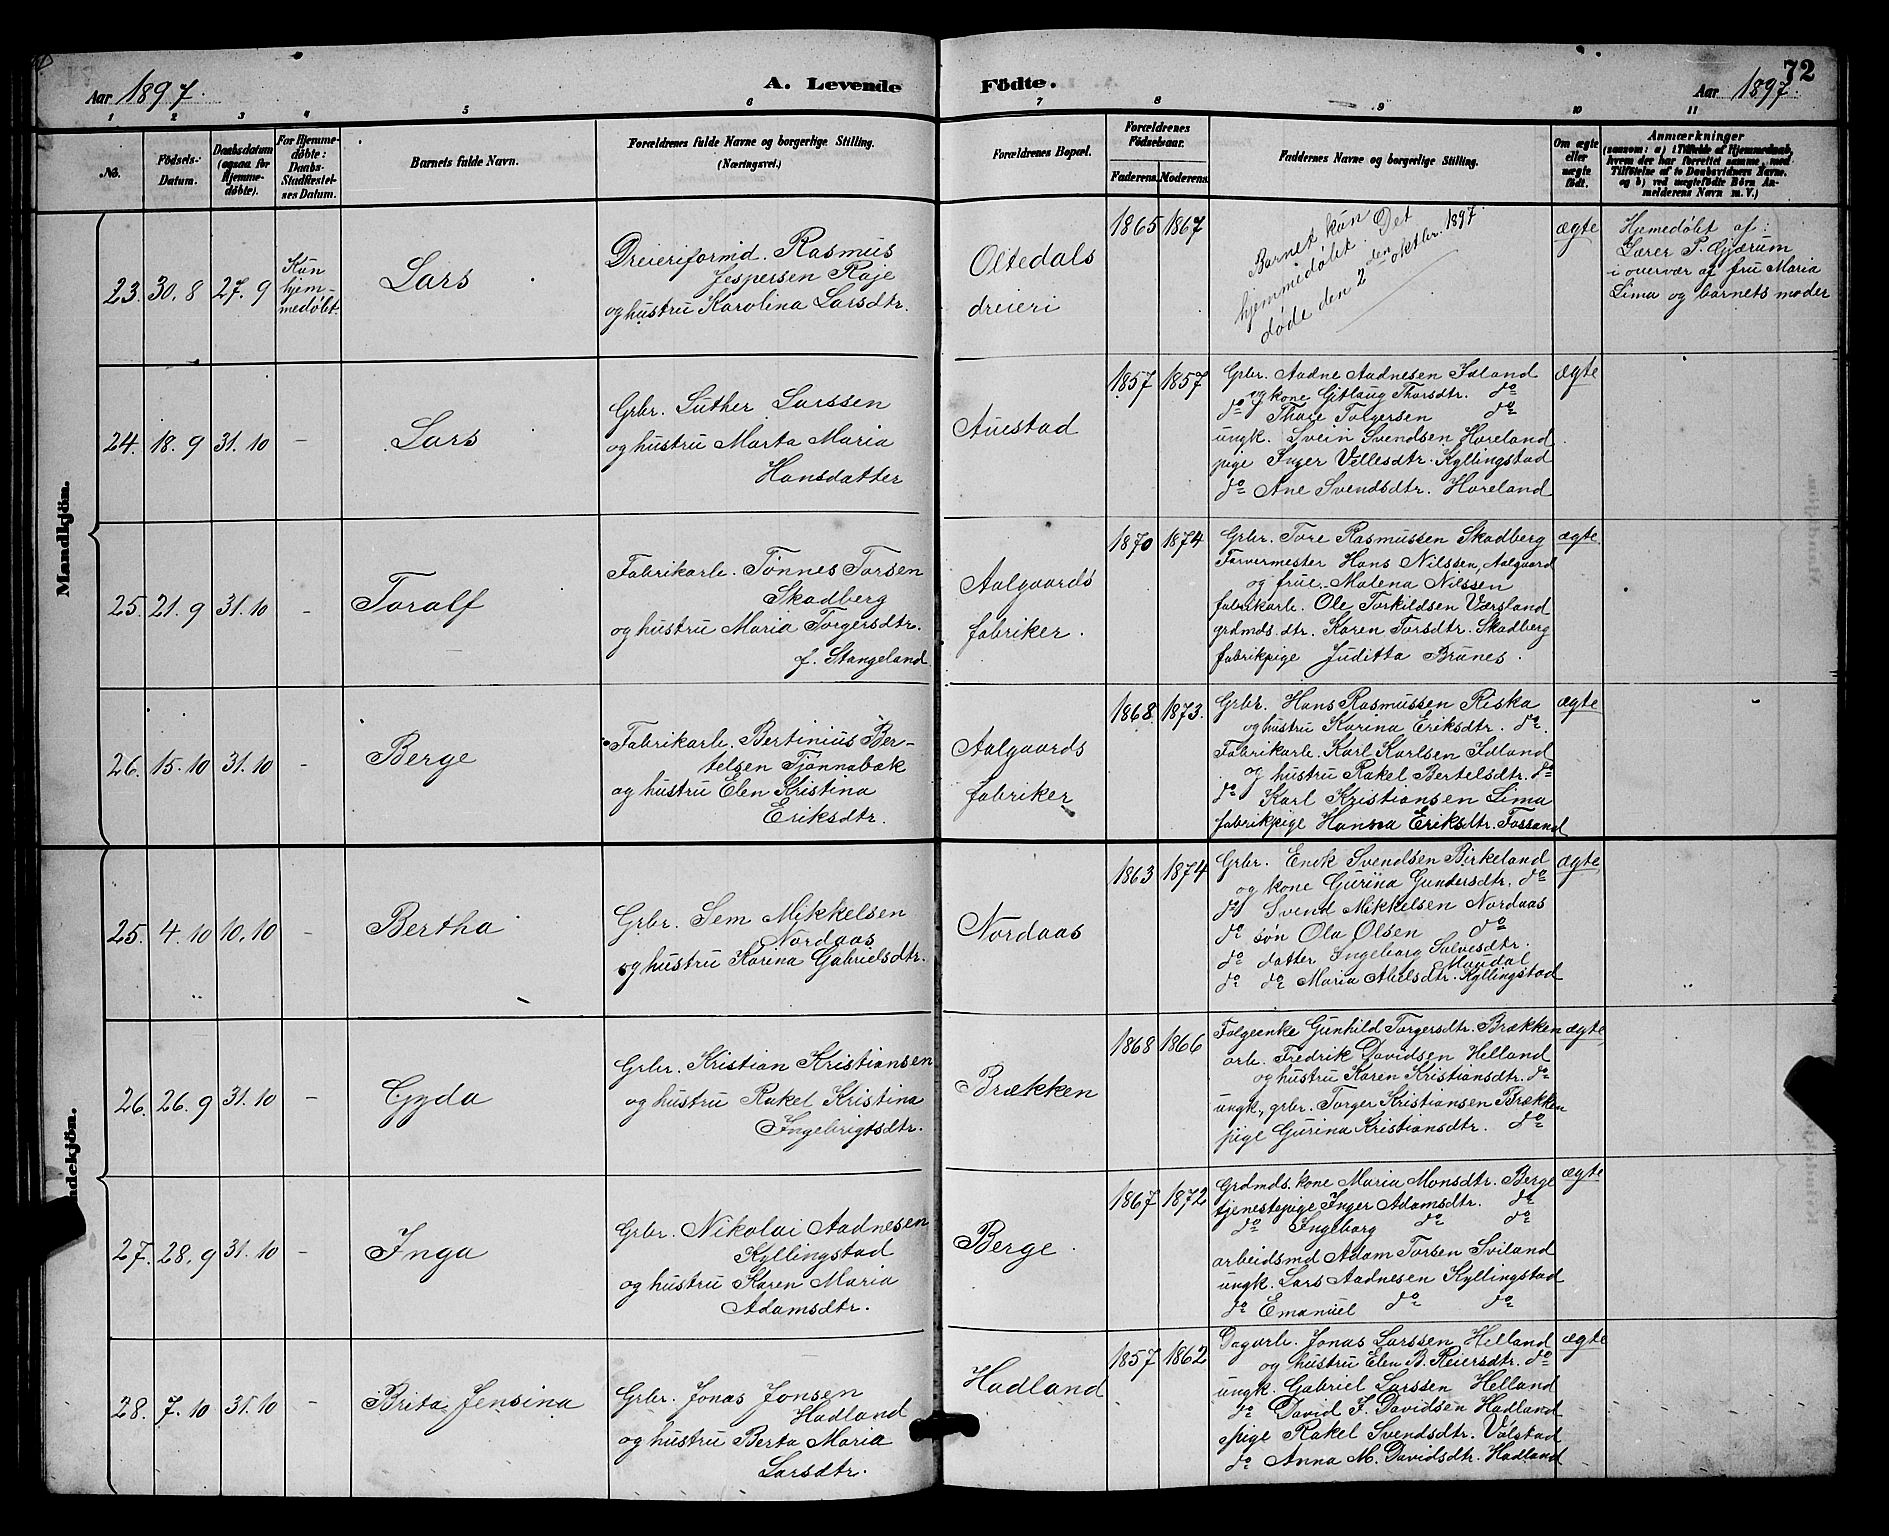 72
Aar 1897.
A. Levende
Födte.
Aar 1897.
1 2 3 4 5 6 7 8 9 10 11
No.
Födsels-Datum.
Daabsdatum (ogsaa for Hjemmedöbte).
For Hjemmedöbte: Daabs-Stadfæstelses Datum.
Barnets fulde Navn.
Forældrenes fulde Navne og borgerlige Stilling.
(Næringsvei.)
Forældrenes Bopæl.
Forældrenes Födselsaar.
Faderens. Moderens.
Faddernes Navne og borgerlige Stilling.
Om ægte eller uægte født.
Anmærkninger
(saasom: a) i Tilfælde af Hjemmedaab,
hvem der har forrettet samme, med
Tilföielse af to Daabsvidners Navne,
og b) ved uægtefödte Börn Anmelderens Navn m. V.)
Mandkjön.
23. 30.8 27.9
Kun
hjem-
medøbt.
Lars
Dreieriformd. Rasmus
Jespersen Raje
og hustru Karolina Larsdtr.
Oltedals
dreieri
1865 1867
Barnet kun
hjemmidøbt. Det
døde den 2den oktbr. 1897.
ægte
Hjemedøbt af:
Lærer P. Gjærum
i overvær af fru Maria
Lima og barnets moder
24. 18.9 31.10 -
Lars
Grbr. Luther Larssen
og hustru Marta Maria
Hansdatter
Auestad
1857 1857
Grbr. Aadne Aadnesen Idland
og kone Gitlaug Thorsdtr. do
do Thore Tolgersen do
ungk. Svein Svendsen Horeland
pige Inger Vellesdtr. Kyllingstad
do Ane Svendsdtr. Horeland
ægte
25. 21.9 31.10 -
Toralf
Fabrikarb. Tønnes Torsen
Skadberg
og hustru Maria Torgersdtr.
f. Stangeland
Aalgaards
fabriker.
1870 1874
Grbr. Tore Rasmussen Skadberg
Farvermester Hans Nilssen, Aalgaard
og frue Malena Nilssen
fabrikarb. Ole TorkildsenVærsland
grdmds. dtr. Karen Torsdtr. Skadberg
fabrikpige Juditta Brunes.
ægte
26. 15.10 31.10 -
Berge
Fabrikarb. Bertinius Ber-
telsen Tjønnabæk
og hustru Elen Kristina
Eriksdtr.
Aalgaards
fabriker
1868. 1873.
Grbr. Hans Rasmussen Riska
og hustru Karina Eriksdtr. do.
Fabrikarb. Karl Karlsen Idland
og hustru Rakel Bertelsdtr. do
do Karl Kristiansen Lima
fabrikpige Hanna Eriksdtr. Fossand
ægte
Kvindekjön.
25. 4.10 10.10 -
Bertha
Grbr. Sem Mikkelsen
Nordaas
og hustru Karina Gabrielsdtr.
Nordaas
1863 1874
Grbr. Enok Svendsen Birkeland
og kone Gurina Gundersdtr. do
do Svend Mikkelsen Nordaas
do søn Ola Olsen do
do datter Ingeborg Salvesdtr.
Maudal
do do Maria Abelsdtr. Kyllingstad
ægte
26. 26.9 31.10 -
Gyda
Grbr. Kristian Kristiansen
og hustru Rakel Kristina
Ingebrigtsdtr.
Brækken
1868 1866
Folgeenke Gunhild Torgersdtr. Brækken
arb. Fredrik Davidsen Helland
og hustru Karen Kristiansdtr. do
ungk., grbr. Torger Kristiansen Brækken
pige Gurina Kristiansdtr. do
ægte
27. 28.9 31.10 -
Inga
Grbr. Nikolai Aadnesen
Kyllingstad
og hustru Karen Maria
Adamsdtr.
Berge
1867 1872
Grdmds. kone Maria Monsdtr. Berge
tjenestepige Inger Adamsdtr. do
do Ingeborg do do
arbeidsmd Adam Torsen Sviland
ungk. Lars Aadnesen Kyllingstad
do Emanuel do do
ægte
28. 7.10 31.10 -
Brita Jensina
Grbr. Jonas Jonsen
Hadland
og hustru Berta Maria
Larsdtr.
Hadland
1857 1862
Dagarb. Jonas Larssen Helland
og hustru Elen B. Reiersdtr. do
ungk. Gabriel Larssen Helland
do David J. Davidsen Hadland
pige Rakel Svendsdtr. Vølstad
do Anna M. Davidsdtr. Hadland
ægte